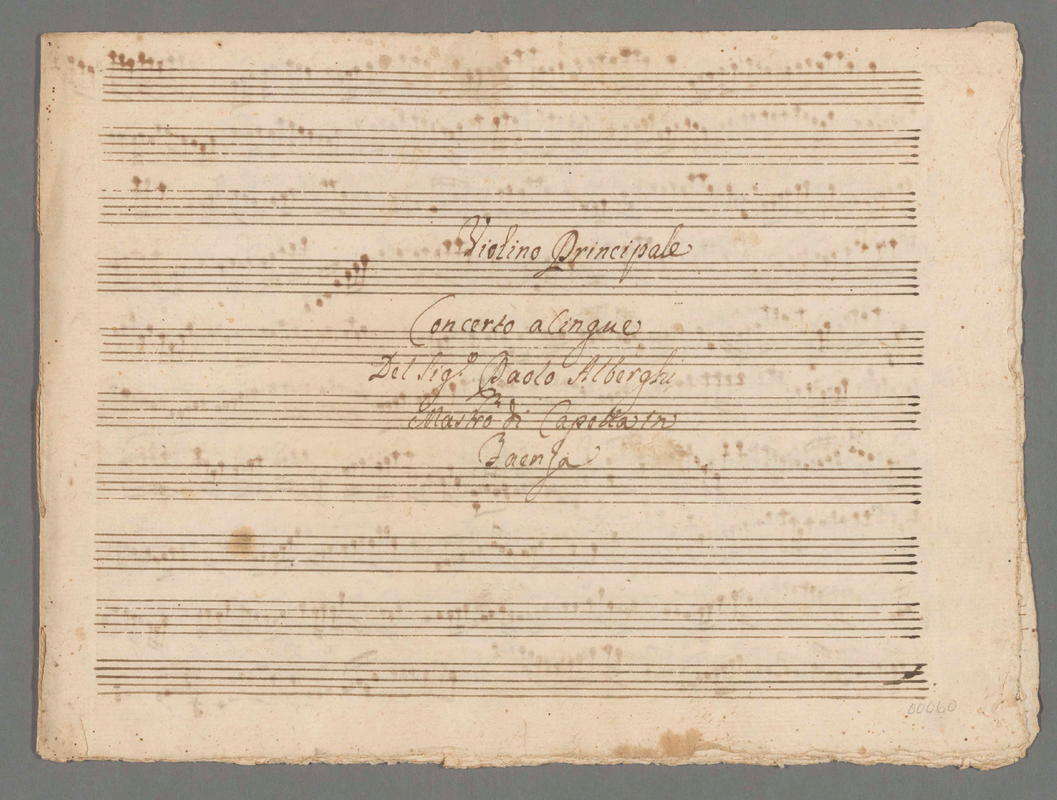 Violino Principale
Concerto a Cinque
Del Sig.re Paolo Alberghi
Mastro di Capella in
Faenza
00060